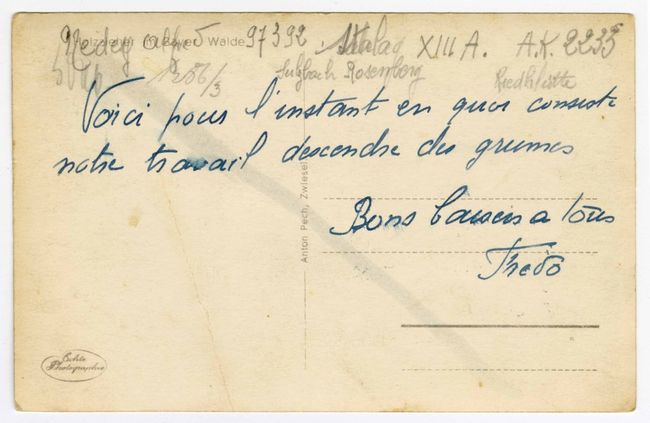 Holzzieher im Bayer. Walde
97392 Stalag XIII A. A.K. 2235
Sulzbach Rosenberg
Voici pour l'instant en quoi consiste
notre travail descendre des grumes
Bons baisers a tous
Fredo
Anton Pech, Zwiesel
Echte
Photographie